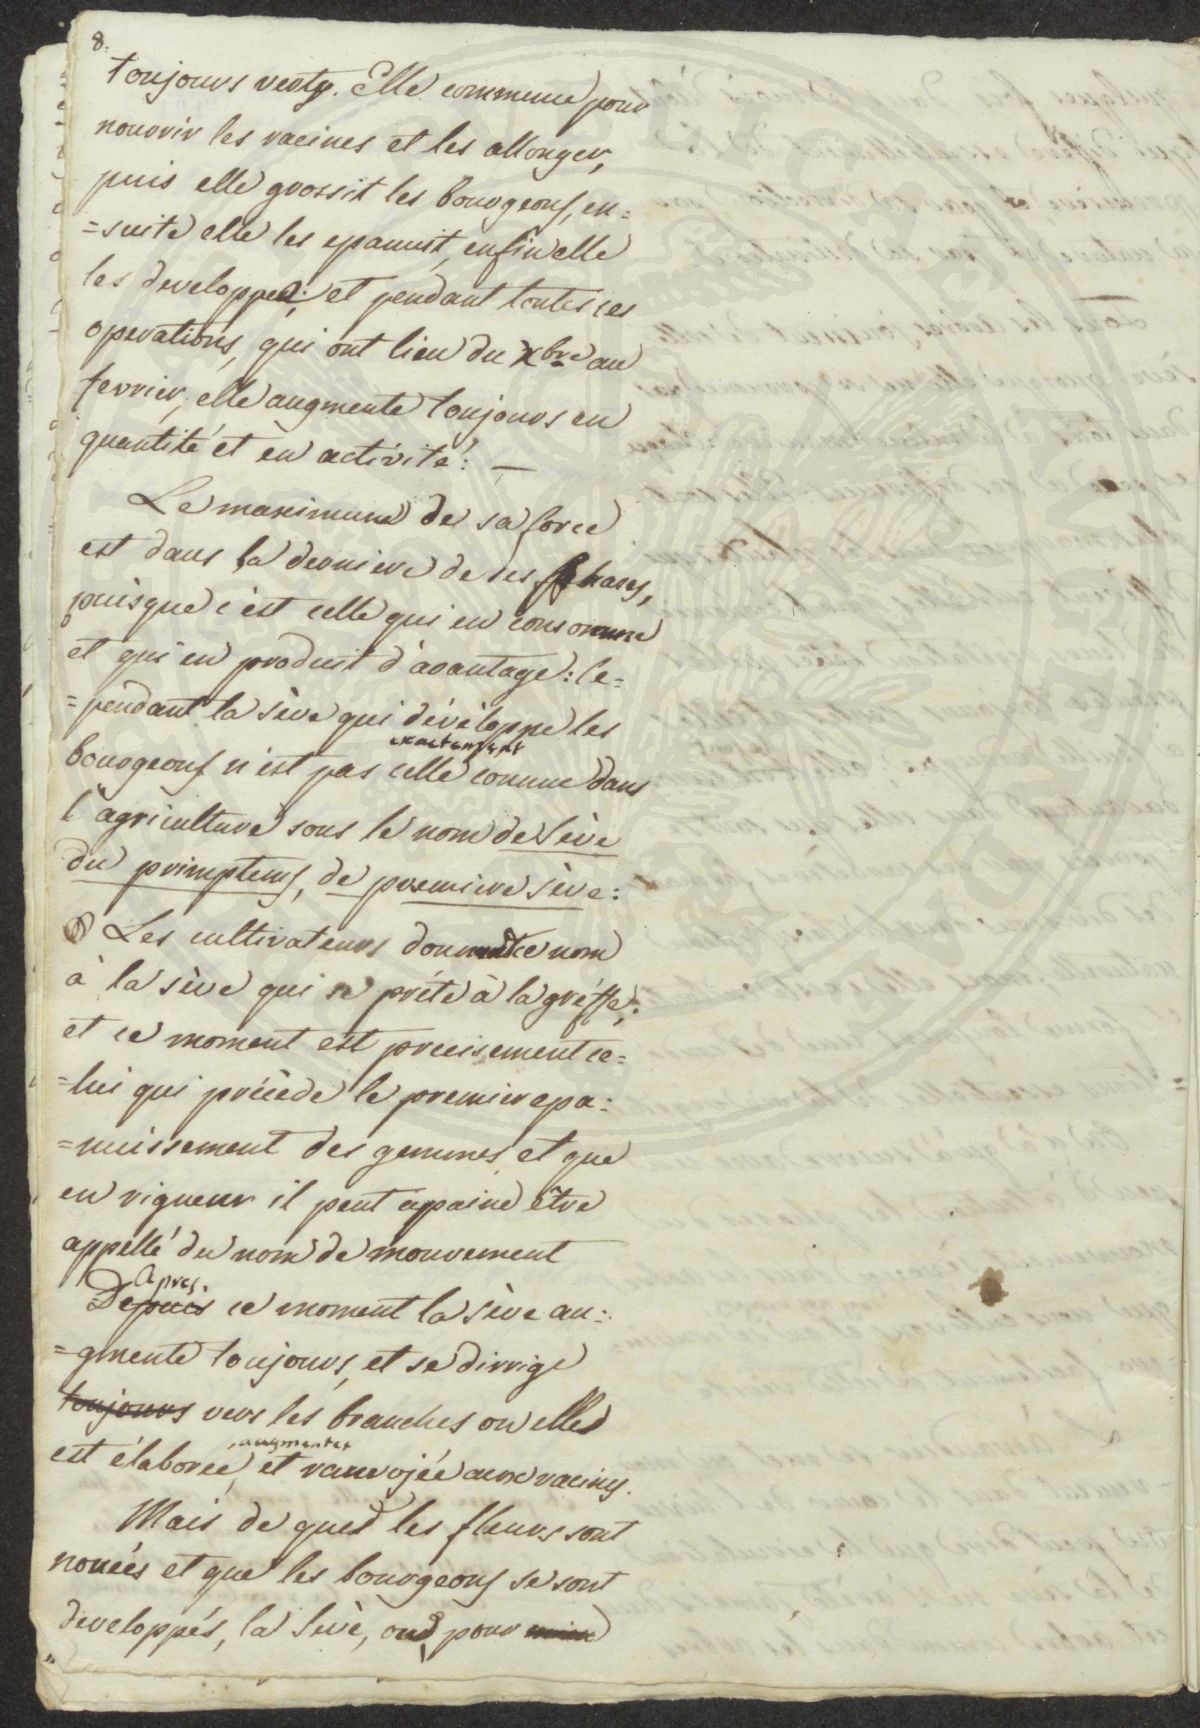 8.
toujours verts. Elle commence pour
nourrir les racines et les allonger,
puis elle grossit les bourgeons, en=
=suite elle les epanuit, enfin elle
les developpe; et pendant toutes ces
operations, qui ont lieu du Xbre au
fevrier, elle augmente toujours en
quantité et en activité: —
Le maximume de sa force
est dans la derniere de ses phases,
puisque c'est celle qui en consomme
et qui en produit d'avantage: ce=
=pendant la sève qui dévéloppe les
exactement
bourgeons n'est pas celle connue dans
l'agriculture sous le nom de Sève
du primptems, de premiere sève:
Les cultivateurs donnent ce nom
à la sève qui se prète à la gréffe;
et ce moment est precisement ce=
=lui qui précède le premier epa=
=nuissement des gemmes, et que
en vigueur il peut apaine être
appellé du nom de mouvement
Après
Depuis ce moment la sève au=
=gmente toujours, et se dirrige
toujours vers les branches ou elle
augmentée
est élaboreé, et ranvojée aux racines.
Mais de que les fleurs sont
noueés et que les bourgeons se sont
developpés, la Sève, ou pour